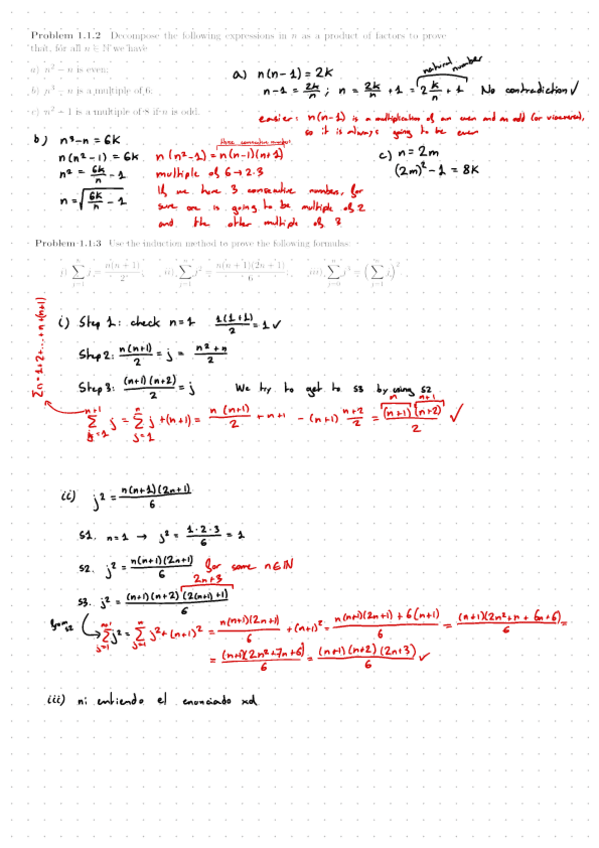 Problem 1.1.2 Decompose the following expressions in n as a product of factors to prove
that, for all n ∈ N we have
a) n² − n is even;
b) n³ − n is a multiple of 6;
c) n² − 1 is a multiple of 8 if n is odd.
a) n(n-1) = 2K
natural number
n-1 = 2K/n ; n = 2K/n + 1 = 2 K/n + 1 . No contradiction ✓
easier: n(n-1) is a multiplication of an even and an odd (or viceversa),
so it is always going to be even
b) n³-n = 6K
n(n²-1) = 6K
n² = 6K/n - 1
n = √(6K/n - 1)
three consecutive numbers
n(n²-1) = n(n-1)(n+1)
multiple of 6 → 2·3
If we have 3 consecutive numbers, for
sure one is going to be multiple of 2
and the other multiple of 3
c) n = 2m
(2m)² - 1 = 8K
Problem 1.1.3 Use the induction method to prove the following formulas:
i) ∑_{j=1}^{n} j = n(n + 1)/2 ; ii) ∑_{j=1}^{n} j² = n(n + 1)(2n + 1)/6 ; iii) ∑_{j=0}^{n} j³ = (∑_{j=1}^{n} j)² .
∑n = 1+2+...+n+(n+1)
i) Step 1: check n=1 1(1+1)/2 = 1 ✓
Step 2: n(n+1)/2 = j = n²+n/2
Step 3: (n+1)(n+2)/2 = j We try to get to S3 by using S2
∑_{j=1}^{n+1} j = ∑_{j=1}^{n} j + (n+1) = n(n+1)/2 + n+1 - (n+1) n+2/2 = (n+1)(n+2)/2 ✓
n n+1
ii) j² = n(n+1)(2n+1)/6
S1. n=1 → j² = 1·2·3/6 = 1
S2. j² = n(n+1)(2n+1)/6 for some n∈IN
2n+3
S3. j² = (n+1)(n+2)(2(n+1)+1)/6
from S2
∑_{j=1}^{n+1} j² = ∑_{j=1}^{n} j² + (n+1)² = n(n+1)(2n+1)/6 + (n+1)² = n(n+1)(2n+1) + 6(n+1)/6 = (n+1)(2n²+n + 6n+6)/6 =
= (n+1)(2n²+7n+6)/6 = (n+1)(n+2)(2n+3)/6 ✓
iii) ni entiendo el enunciado xd